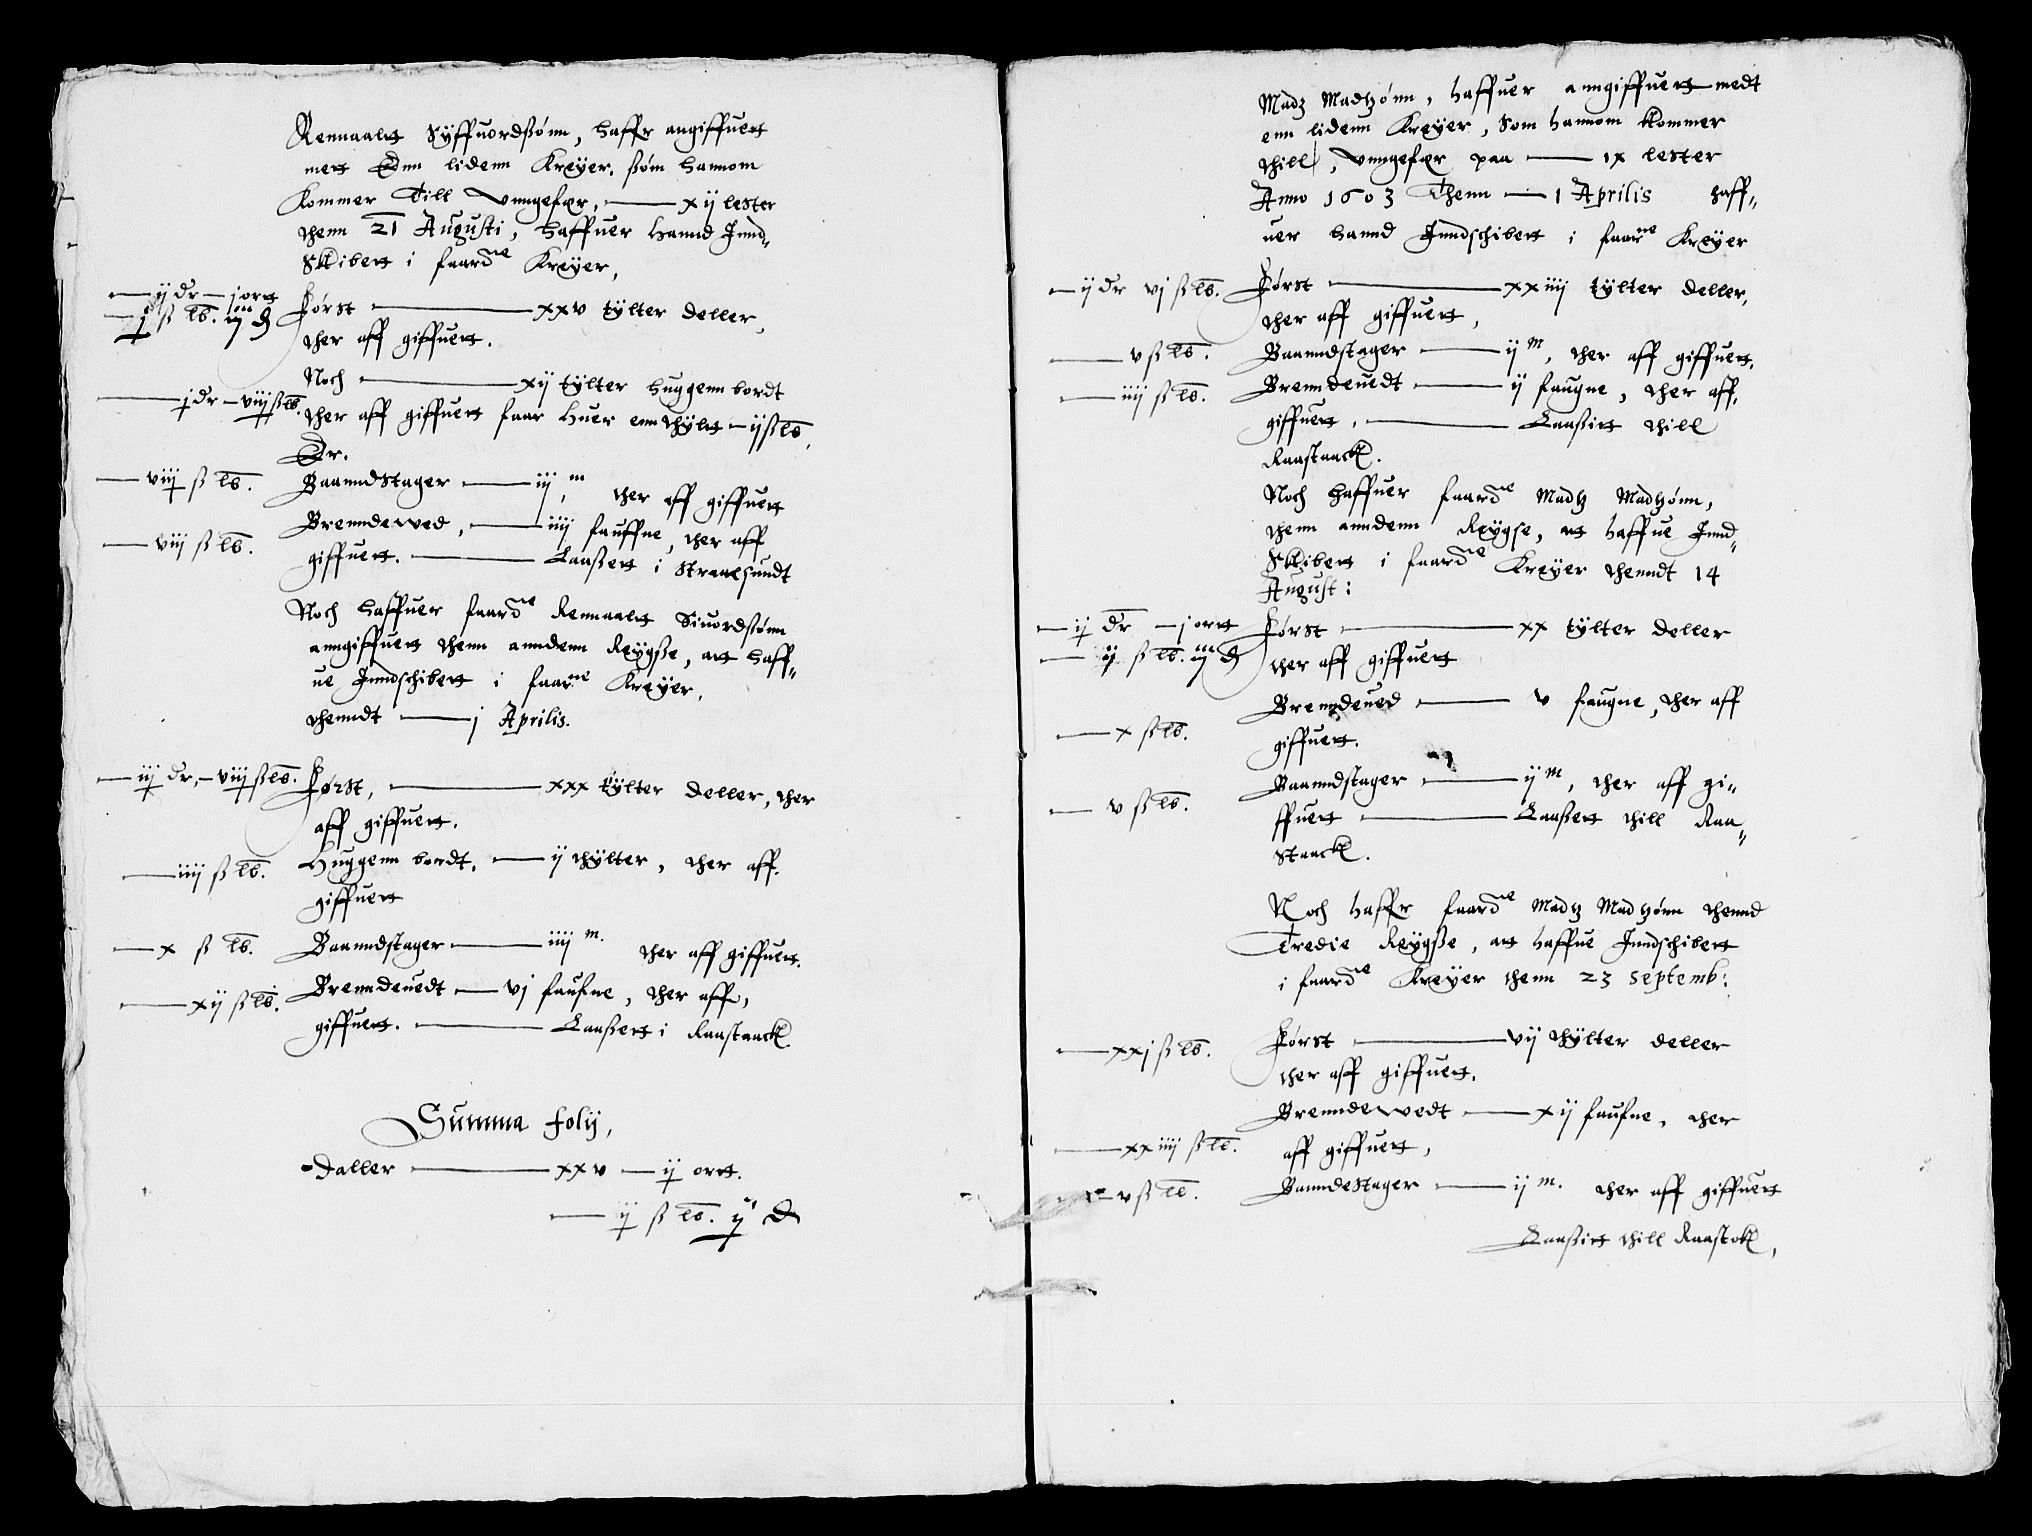 Rennaalt Syffuordssønn, haffr angiffuert
mett Enn lidenn Kreÿer, ssøm hannom
Kommer Till Vnngefer, — xij lester
thenn 21 Augusti, haffuer hannd Innd„
Skibert i faardne Kreÿer,
— ij dr — j ortt
— j ß lb. ij ₰
Først — xxv tÿlter deller,
ther aff giffuert.
— j dr — viij ß lb.
Noch — xij tÿlter huggenn bordt
ther aff giffuert faar huer enn thÿlt — ij ß lb,
Dr.
— viij ß lb.
BaanndStager — iij, m ther aff giffuert
— viij ß lb.
Brenndewed, — iiij fauffne, ther aff
giffuert. — Laassert i Straalsundt
Noch haffuer faardne Rennaalt Siuordssønn
anngiffuert thenn anndenn Reÿgsse, att haff„
ue Inndschibert i faarne Kreÿer,
thenndt — j Aprilis.
— iij dr, — viij ß lb.
Først, — xxx tÿlter deller, ther
aff giffuert.
— iiij ß lb.
Huggenn bordt, — ij thÿlter, ther aff.
giffuert
— x ß lb.
Baanndstager — iiij m. ther aff giffuert.
— xij ß lb.
Brenndeuedt — vj faufne, ther aff,
giffuert. — Laassert i Raastaack
Summa folij,
Daller — xxv — ij ortt.
— ij ß lb. ij ₰
Madz Madtzønn, haffuer anngiffuert medt
enn lidenn Kreÿer, Som hannom Kommer
thill, Vnngefer paa — ix lester
Anno 1603 Thenn — 1 Aprilis haff„
uer hannd Inndschibert i faarne Kreÿer
— ij dr vj ß lb.
Først — xxiiij tÿlter deller,
ther aff giffuert,
— v ß lb.
Baanndstager — ij m, ther aff giffuert.
— iiij ß lb.
Brenndeuedt — ij faugne, ther aff,
giffuert, — Laassirt thill
Raastaack.
Noch haffuer faardne Madtz Madtzønn,
thenn anndenn Reÿgse, att haffue Innd„
Skibert i faardne Kreÿer thenndt 14
August:
— ij dr — j ortt
— ij ß lb. ij ₰
Først — xx tÿlter deller
ther aff giffuert
— x ß lb.
Brenndeued — v faugne, ther aff
giffuert.
— v ß lb.
Baanndstager — ij m, ther aff gi„
ffuert — Laassert thill Raa„
Staack.
Noch haffr faardne Madtz Madtzønn thennd
Tredie Reÿgsse, att haffue Inndschibert
i faardne Kreÿer thenn 23 Septemb:
— xxj ß lb.
Først — vij thÿlter deller
ther aff giffuert.
Brenndewedt — xij faufne, ther
— xxiiij ß lb.
aff giffuert,
— v ß lb.
BanndeStager — ij m. ther aff giffuert
Laassirt thill Raastok,